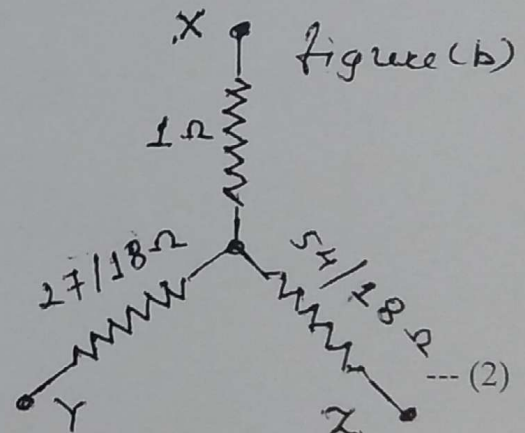 .X
figure(b)
1Ω
27/18Ω
54/18Ω
--- (2)
Y
Z